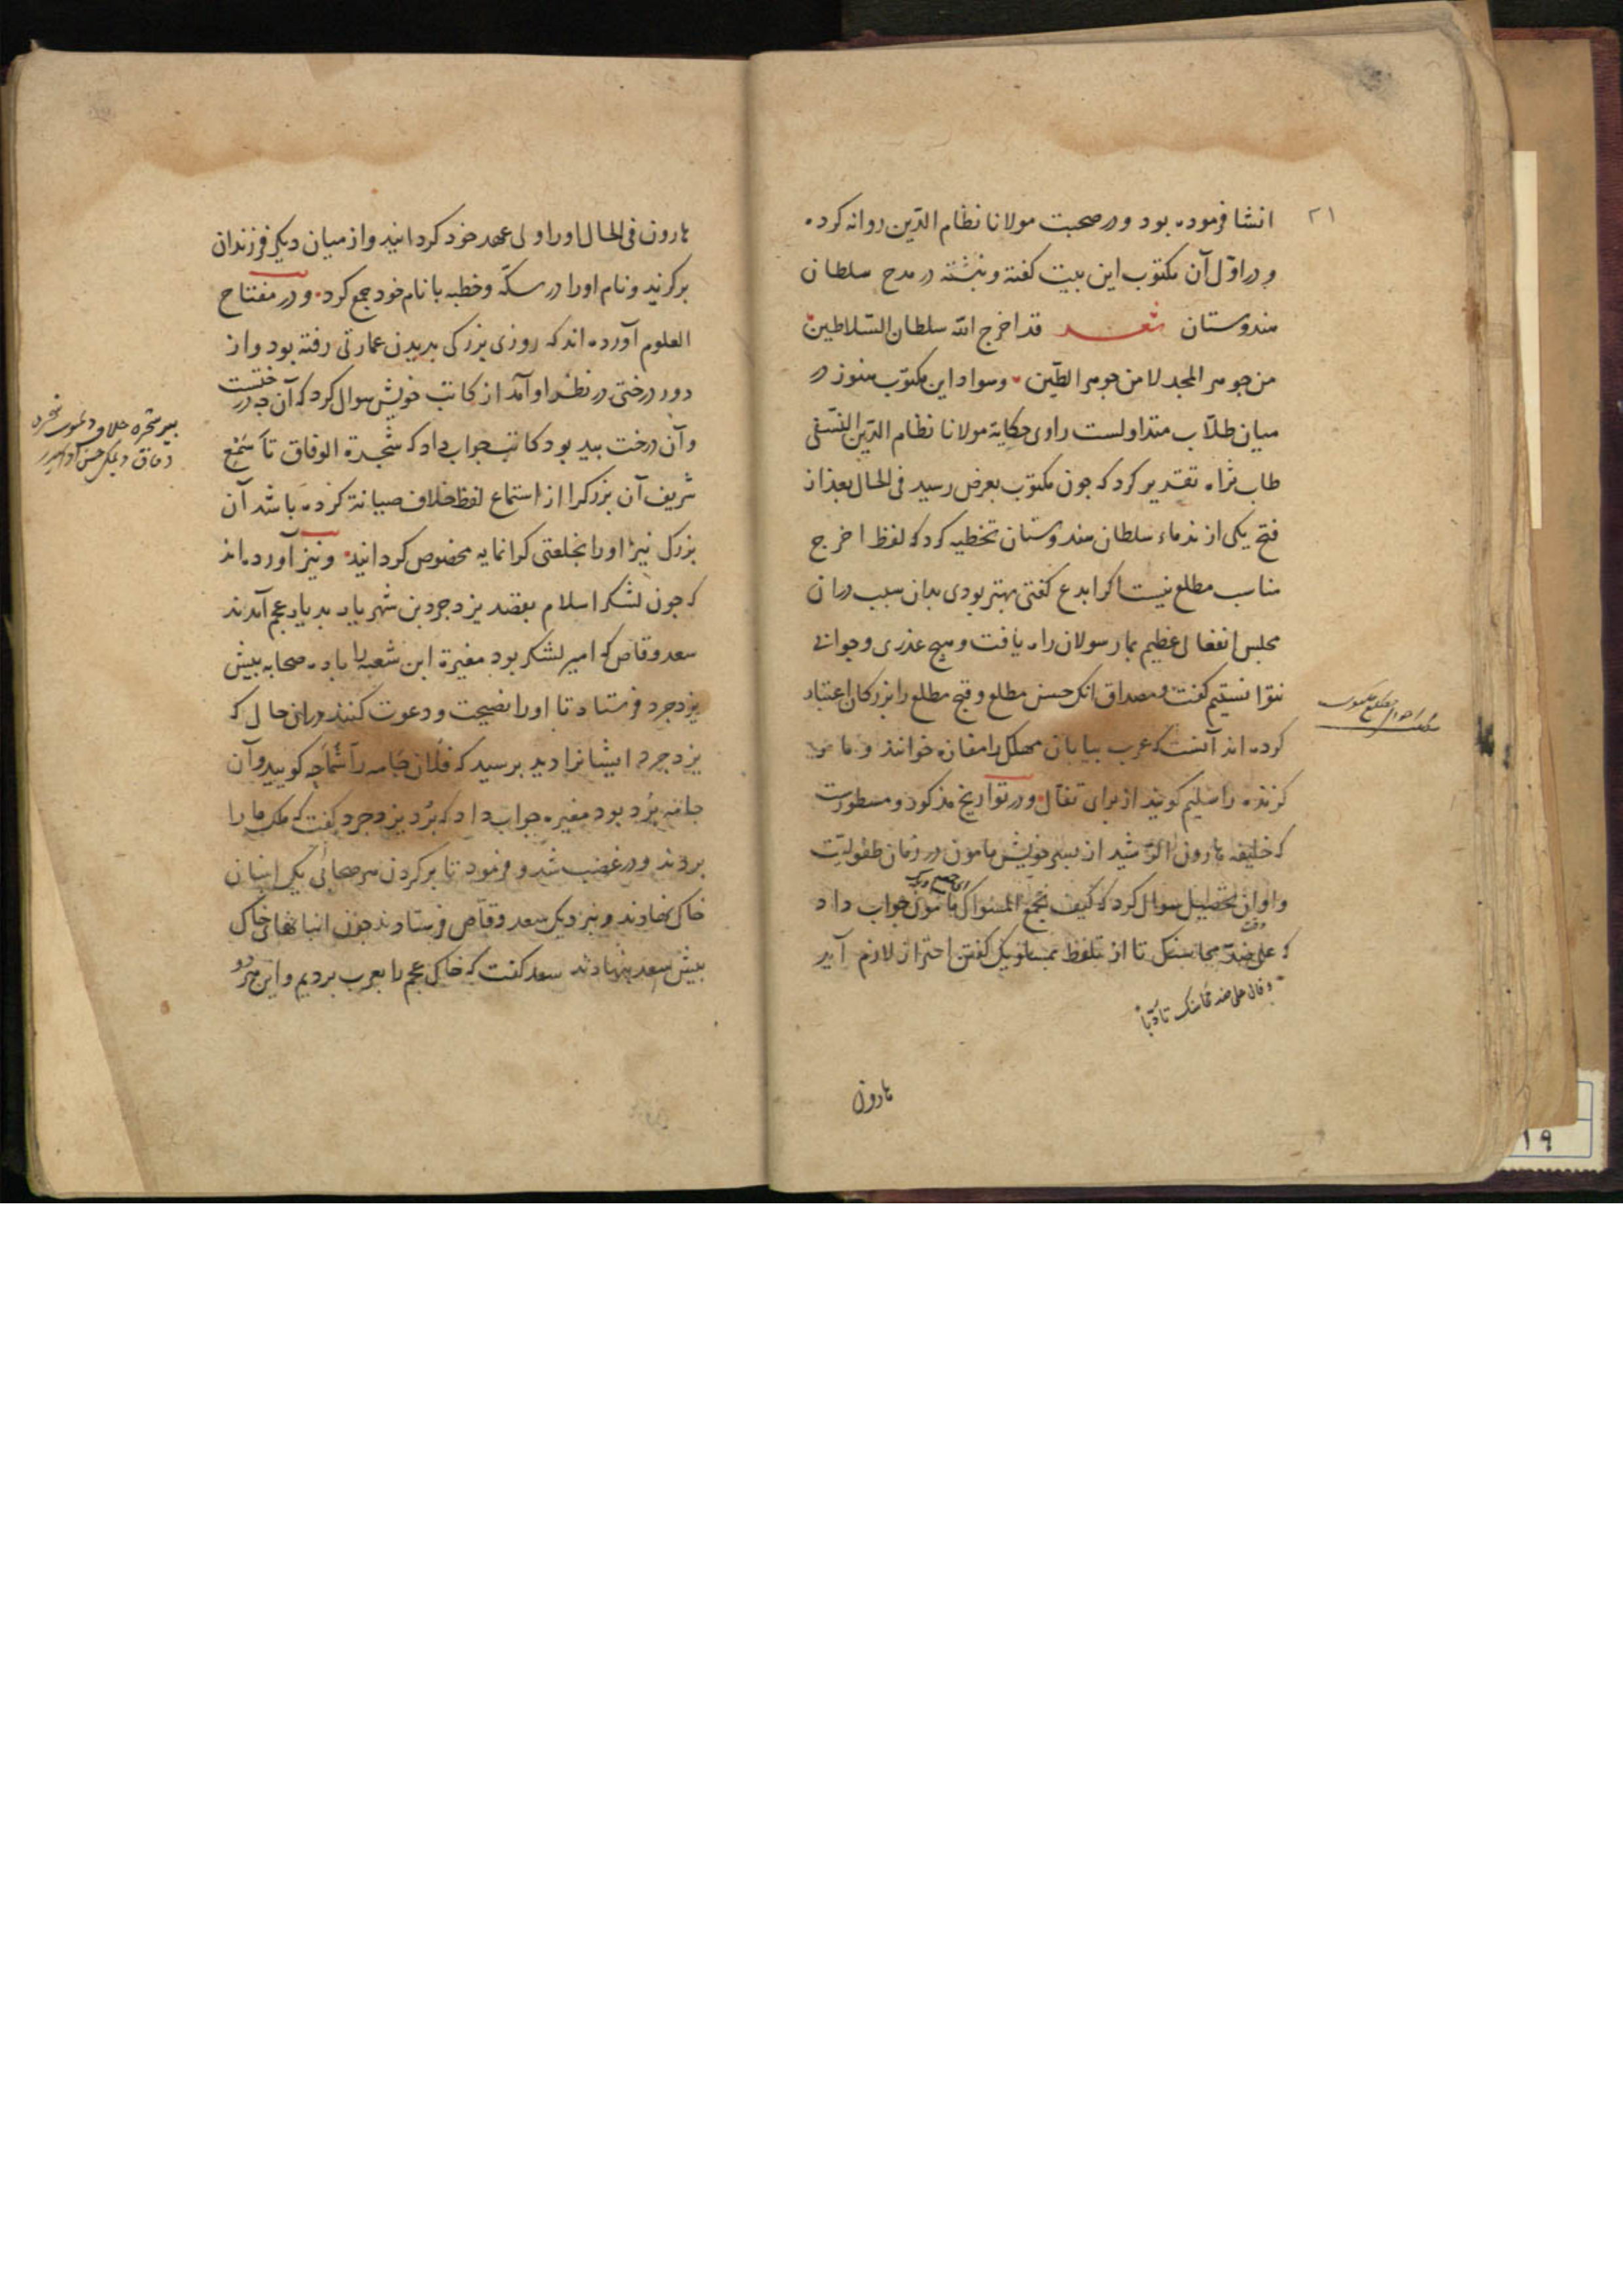 ۲۱
انشا فرموده بود و در صحبت مولانا نظام الدّین روانه کرده
و در اوّل آن مکتوب این بیت کفته و نبشته در مدح سلطان
هندوستان شعر قد اخرج الله سلطان السّلاطین
من جوهر المجد لا من جوهر الطّین و سواد این مکتوب هنوز در
میان طلّاب متداولست راوی حکایة مولانا نظام الدّین النسفی
طاب ثراه تقدیر کرد که جون مکتوب بعرض رسید فی الحال بعد از
فتح یکی از ندماء سلطان هندوستان تخطیه کرد که لفظ اخرج
مناسب مطلع نیست اکر ابدع کفتی بهتر بودی بدان سبب دران
مجلس انفعالی عظیم بما رسولان راه یافت و هیج عذری و جوابی
نتوانستیم کفت و مصداق انک حسن مطلع و قبح مطلع را بزرکان اعتبار
کرده اند آنست که عرب بیابان مهلک را مفازه خوانند و مار
کزنده را سلیم کویند از برای تفآل و در تواریخ مذکور و مسطورست
که خلیفه هارون الرّشید از پسر خویش مامون در زمان طفولیّت
و اوان تحصیل سوال کرد که کیف تجمع المسواک مامون جواب داد
که علی ضدّ محاسنک تا از تلفظ بمساویک کفتن احتراز لازم آید
و قال علی ضد محاسنک تأدّبا
هارون
هارون فی الحال او را ولی عهد خود کردانید و از میان دیکر فرزندان
برکزید و نام او را در سکّه و خطبه با نام خود جمع کرد و در مفتاح
العلوم آورده اند که روزی بزرکی بدیدن عمارتی رفته بود و از
دور درختی در نظر او آمد از کاتب خویش سوال کرد که آن جه درختست
و آن درخت بید بود کاتب جواب داد که شجرة الوفاق تا سمع
شریف آن بزرک را از استماع لفظ خلاف صیانة کرده باشد آن
بزرک نیز او را بخلعتی کرانمایه مخصوص کردانید و نیز آورده اند
که جون لشکر اسلام بقصد یزدجرد بن شهریار بدیار عجم آمدند
سعد وقاص که امیر لشکر بود مغیرة ابن شعبه را با ده صحابه بیش
یزدجرد فرستاد تا او را نصیحت و دعوت کنند در ان حال که
یزدجرد ایشانرا دید برسید که فلان جامه را شما جه کویید و آن
جامه بُرد بود مغیره جواب داد که بُرد یزدجرد کفت که ملک ما را
بردند و در غضب شد و فرمود تا بر کردن هر صحابی یکی انبان
خاک نهادند و بنزدیک سعد وقاص فرستادند جون انبانهای خاک
بیش سعد بنهادند سعد کفت که خاک عجم را بعرب بردیم و این هر دو